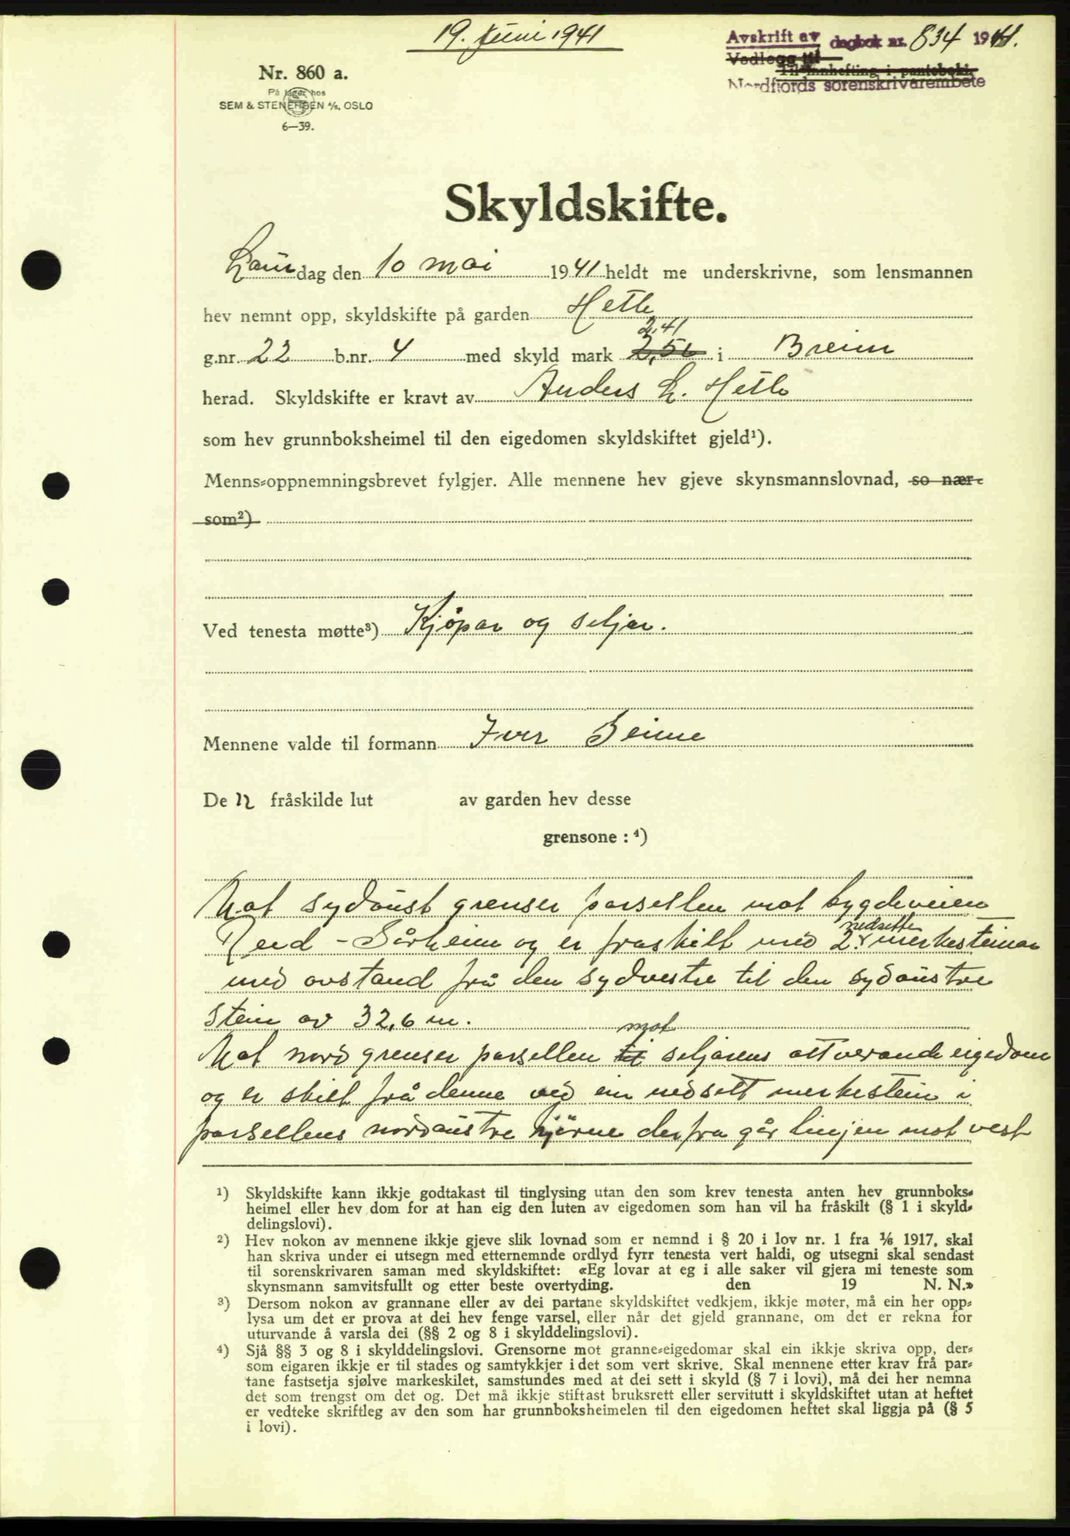 19. juni 1941
Avskrift av dagbok nr. 834 1941.
Vedlegg til
Til innhefting i panteboki.
Nordfjords sorenskrivarembete
Nr. 860 a.
På lager hos
SEM & STENERSEN A/S, OSLO
6—39.
Skyldskifte.
Laurdag den 10 mai 1941 heldt me underskrivne, som lensmannen
hev nemnt opp, skyldskifte på garden Hetle
2,41
g.nr. 22 b.nr. 4 med skyld mark 2,50 i Breim
herad. Skyldskifte er kravt av Anders L. Hetle
som hev grunnboksheimel til den eigedomen skyldskiftet gjeld¹).
Menns-oppnemningsbrevet fylgjer. Alle mennene hev gjeve skynsmannslovnad, so nær-
som²)
Ved tenesta møtte³) Kjöpar og seljar.
Mennene valde til formann Iver Beime
De n fråskilde lut av garden hev desse
grensone : ⁴)
Mot sydaust grenser parsellen mot bygdeveien
Reed - Sårheim og er fraskilt med 2 nedsette merkesteinar
med avstand frå den sydvestre til den sydaustre
stein av 32,6 m.
Mot nord grenser parsellen til mot seljarens attverande eigedom
og er skilt frå denne ved ein nedsett merkestein i
parsellens nordaustre hjörne derfra går linjen mot vest
¹) Skyldskifte kann ikkje godtakast til tinglysing utan den som krev tenesta anten hev grunnboks-
heimel eller hev dom for at han eig den luten av eigedomen som han vil ha fråskilt (§ 1 i skyld-
delingslovi).
²) Hev nokon av mennene ikkje gjeve slik lovnad som er nemnd i § 20 i lov nr. 1 fra 1/6 1917, skal
han skriva under ei utsegn med etternemnde ordlyd fyrr tenesta vert haldi, og utsegni skal sendast
til sorenskrivaren saman med skyldskiftet: «Eg lovar at eg i alle saker vil gjera mi teneste som
skynsmann samvitsfullt og etter beste overtyding. den 19 N. N.»
³) Dersom nokon av grannane eller av dei partane skyldskiftet vedkjem, ikkje møter, må ein her opp-
lysa um det er prova at dei hev fenge varsel, eller når det gjeld grannane, om det er rekna for
uturvande å varsla dei (§§ 2 og 8 i skylddelingslovi).
⁴) Sjå §§ 3 og 8 i skylddelingslovi. Grensorne mot granne-eigedomar skal ein ikkje skriva opp, der-
som eigaren ikkje er til stades og samtykkjer i det som vert skrive. Skal mennene etter krav frå par-
tane fastsetja sjølve markeskilet, samstundes med at dei sett i skyld (§ 7 i lovi), må dei her nemna
det som trengst om det og. Det må ikkje stiftast bruksrett eller servitutt i skyldskiftet utan at heftet
er vedteke skriftleg av den som har grunnboksheimelen til den eigedomen heftet skal liggja på (§ 5
i lovi).